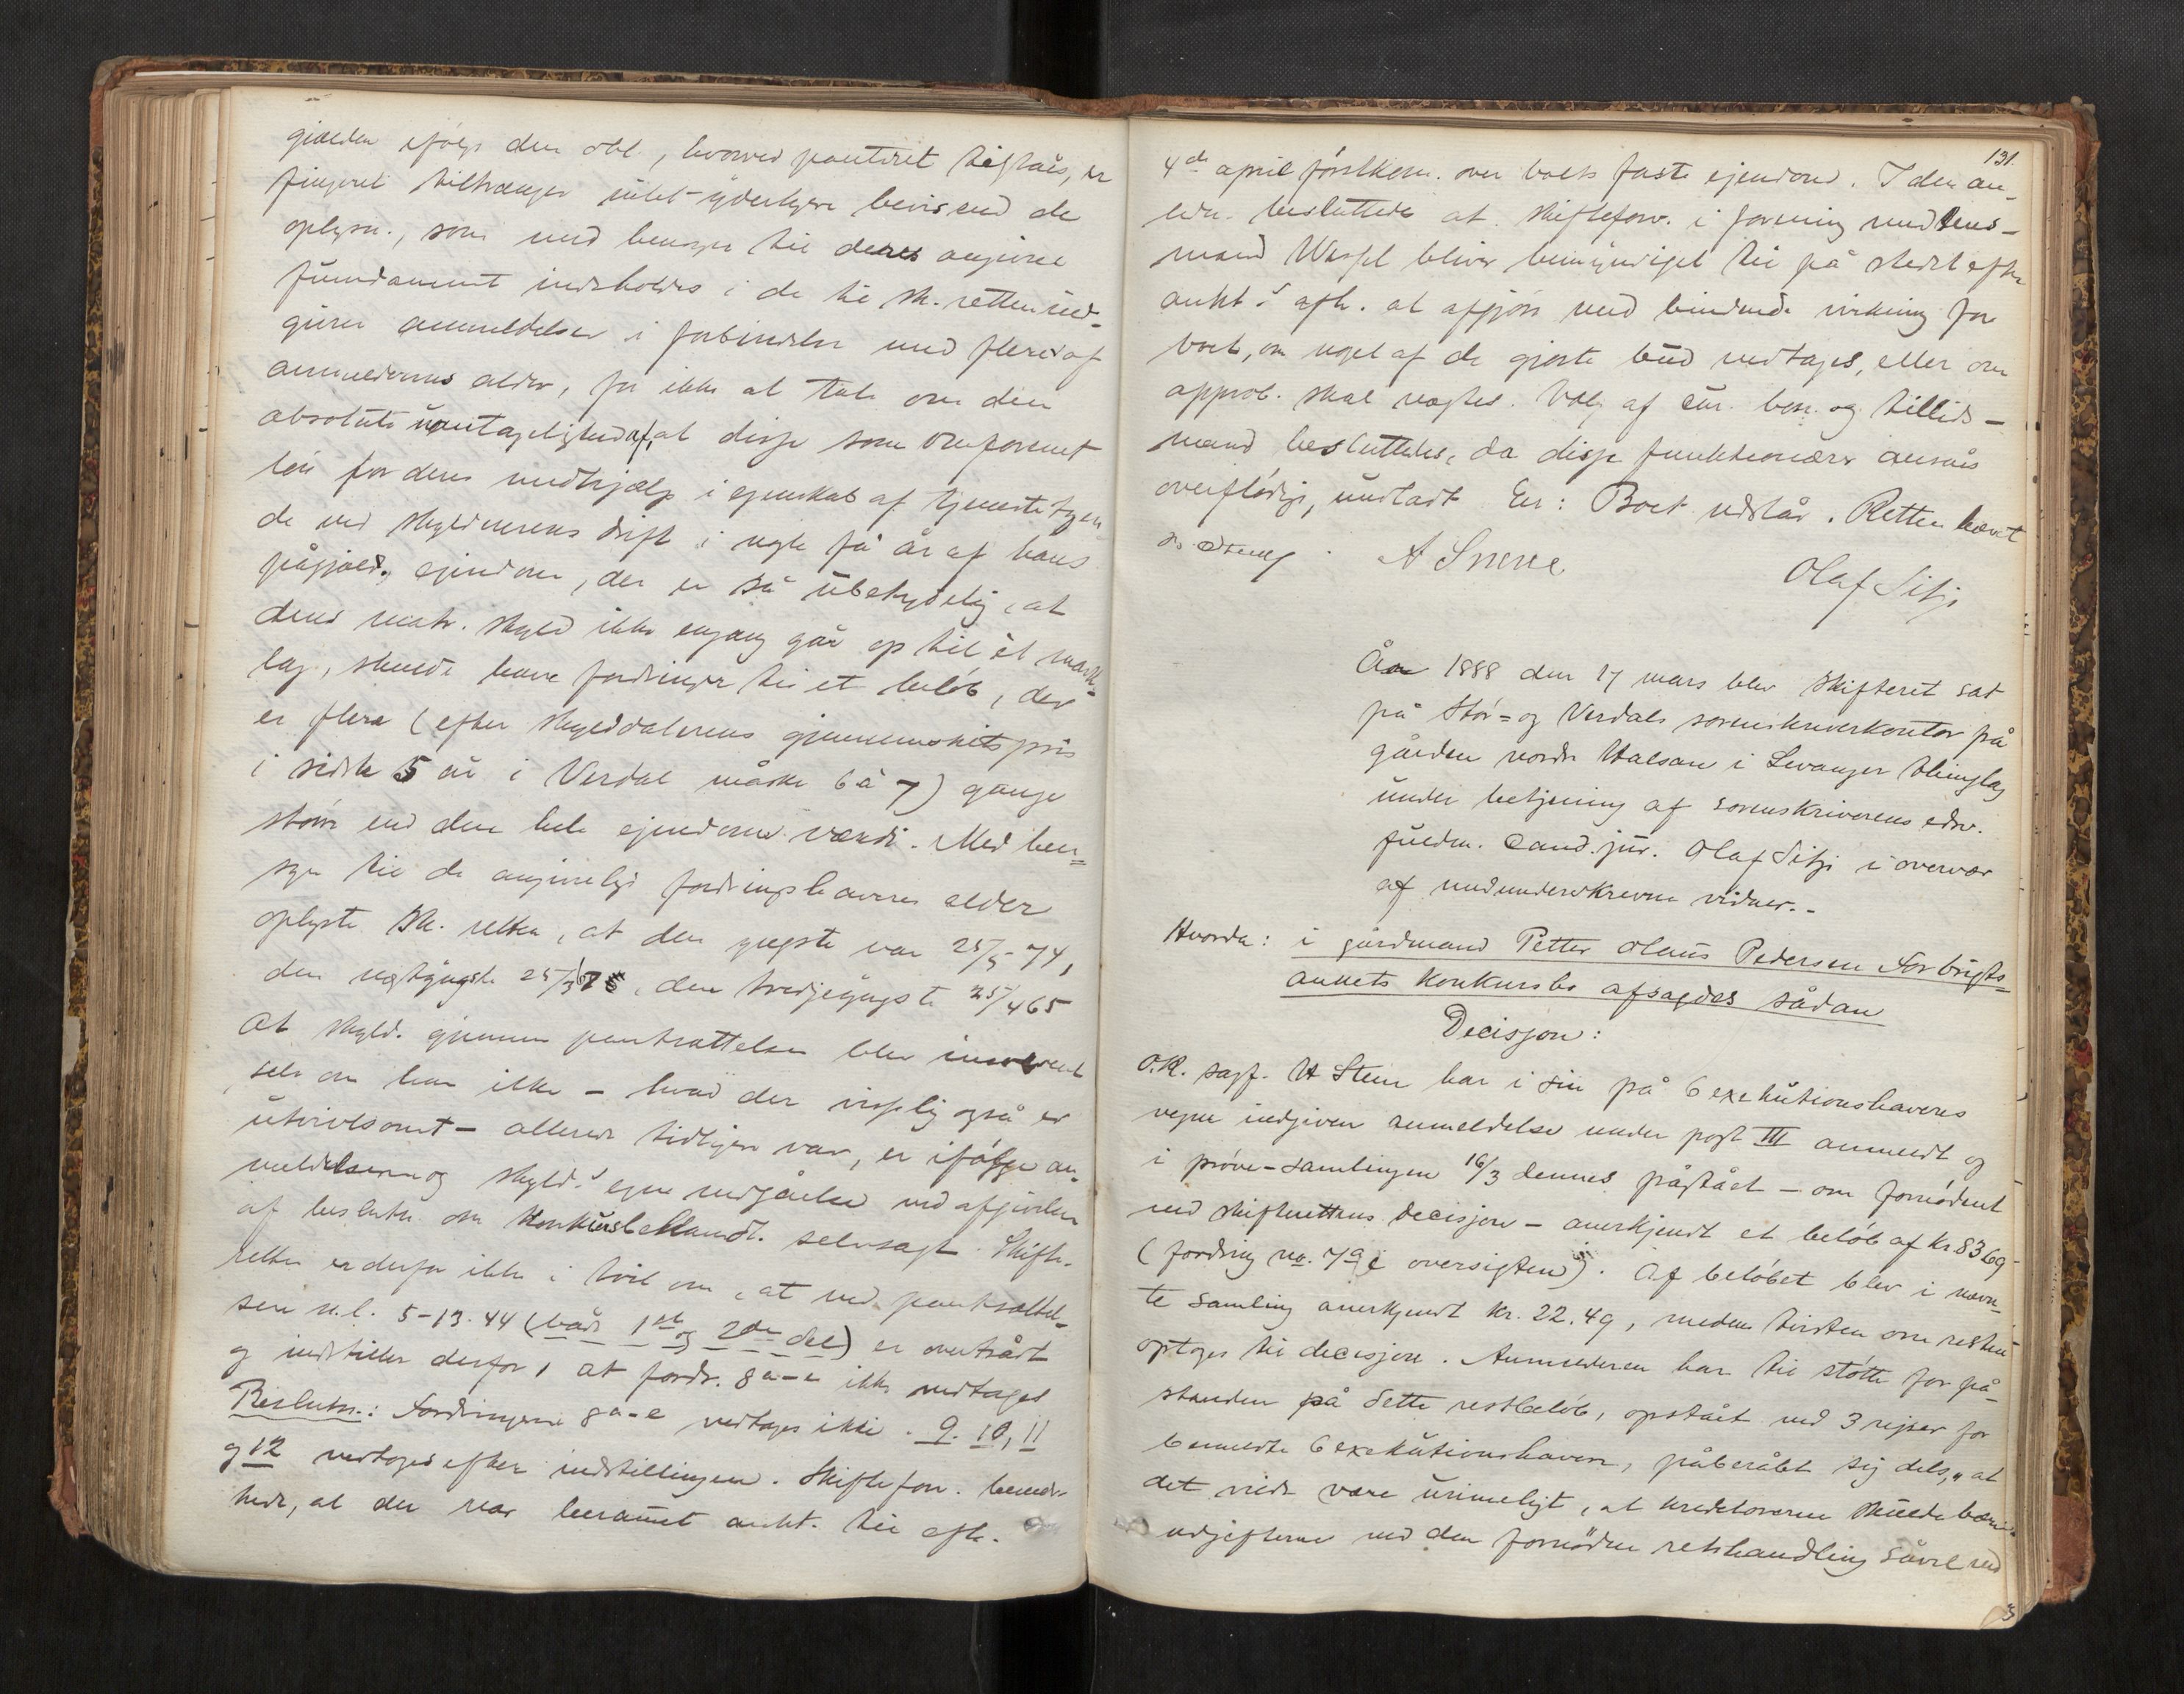 gjælden ifølge den obl., hvorved panteret tilstås, er
fingeret tiltrænger intet yderligere bevis end de
oplysn., som med hensyn til deres angivne
fundament indeholdes i de til sk. retten ind-
givne anmeldelser i forbindelse med flere af
anmeldernes alder, for ikke at tale om den
absolute uantagelighed af, at disse som
løn for deres medhjælp i egenskab af tjenestetyen
de ved skyldnerens drift i nogle få år af hans
pågjæld. ejendom, der er så ubetydelig, at
dens matr. skyld ikke engang går op til ét mark-
lag, skulde have fordringer til et beløb, der
er flere (efter skylddalerens gjennemsnitspris
i sidste 5 år i Verdal måske 6 à 7) gange
større end den hele ejendoms værdi. Med hen-
syn til de angivelige fordringshaveres alder
oplyste sk. retten, at den yngste var 25/5-74,
den næstyngste 25/3 75, den tredjeyngste 25/4 65
At skyld. gjennem pantsættelsen blev insolvent
selv om han ikke – hvad der visselig også er
utvivlsomt – allerede tidligere var, er ifølge an-
meldelserne og skyld.s egen vedgåelse ved afgivelsen
af beslutn. om konkursbehandl. selvsagt. Skifte-
retten er derfor ikke i tvil om, at ved pantsættel-
sen n.l. 5-13-44 (både 1ste og 2den del) er overtrådt
og indstiller derfor, at fordr. 8 a-e ikke vedtages
Beslutn.: Fordringerne 8 a-e vedtages ikke. 9. 10, 11
og 12 vedtoges efter indstillingen. Skifteforv. bemær-
kede, at der var berammet aukt. til afh.
131.
4de april førstkom. over boets faste ejendom. I den an-
ledn. besluttedes at skifteforv. i forening med lens-
mand Wessel bliver bemyndiget til på stedet efter
aukt.s afh. at afgjøre med bindende virkning for
boet, om noget af de gjorte bud vedtages, eller om
approb. skal nægtes. Valg af cur. bon. og tillids-
mand besluttedes, da disse funktionærer ansåes
overflødige, undladt. Er: Boet udstår. Retten hævet
A Snexe
Olaf Sitje
År 1888 den 17 mars blev skifteret sat
på Stør- og Verdals sorenskriverkontor på
gården nordre Halsan i Levanger thinglag
under betjening af sorenskriverens edsv.
fuldm. cand. jur. Olaf Sitje i overvær
af medunderskrevne vidner. –
Hvorda: i gårdmand Petter Olaus Pedersen Forbrigts-
aunets konkursbo afsagdes sådan
Decisjon:
O.R. sagf. H Stem har i sin på 6 exekutionshaveres
vegne indgiven anmeldelse under post III anmeldt og
i prøve-samlingen 16/3 dennes påstået – om fornødent
ved skifterettens decisjon – anerkjendt et beløb af kr 83 69
(fordring no. 7 a i oversigten). Af beløbet blev i nævn-
te samling anerkjendt kr. 22.49, medens tvisten om resten
optoges til decisjon. Anmelderen har til støtte for på-
standen på dette restbeløb, opstået ved 3 rejser for
bemeldte 6 exekutionshavere, påberåbt sig dels, "at
det vilde være urimeligt, at kreditorerne skulde bære
udgifterne ved den fornødne retshandling såvel ved